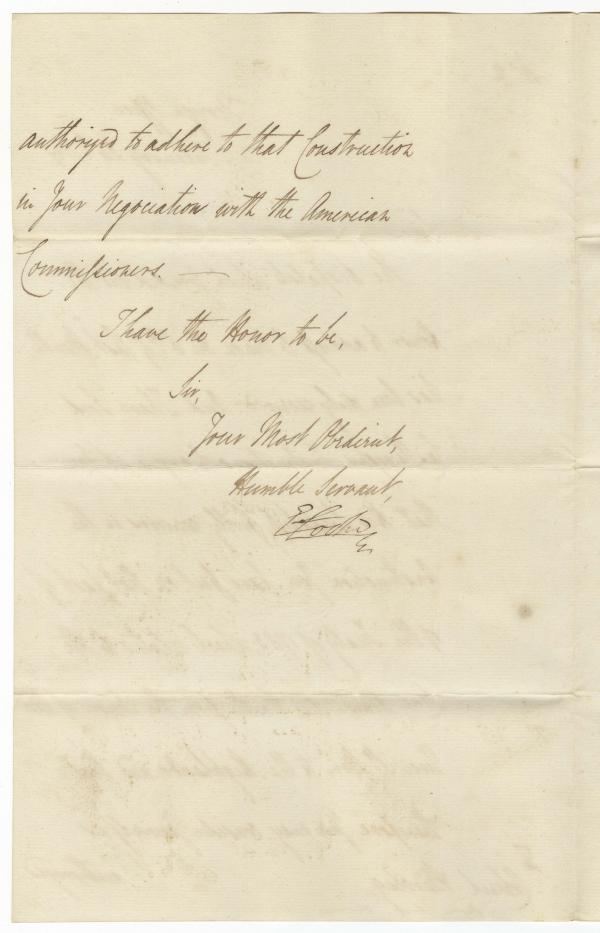 authorized to adhere to that Construction
in Your Negociation with the American
Commissioners. —
I have the Honor to be,
Sir,
Your Most Obedient,
Humble Servant,
E Cooke